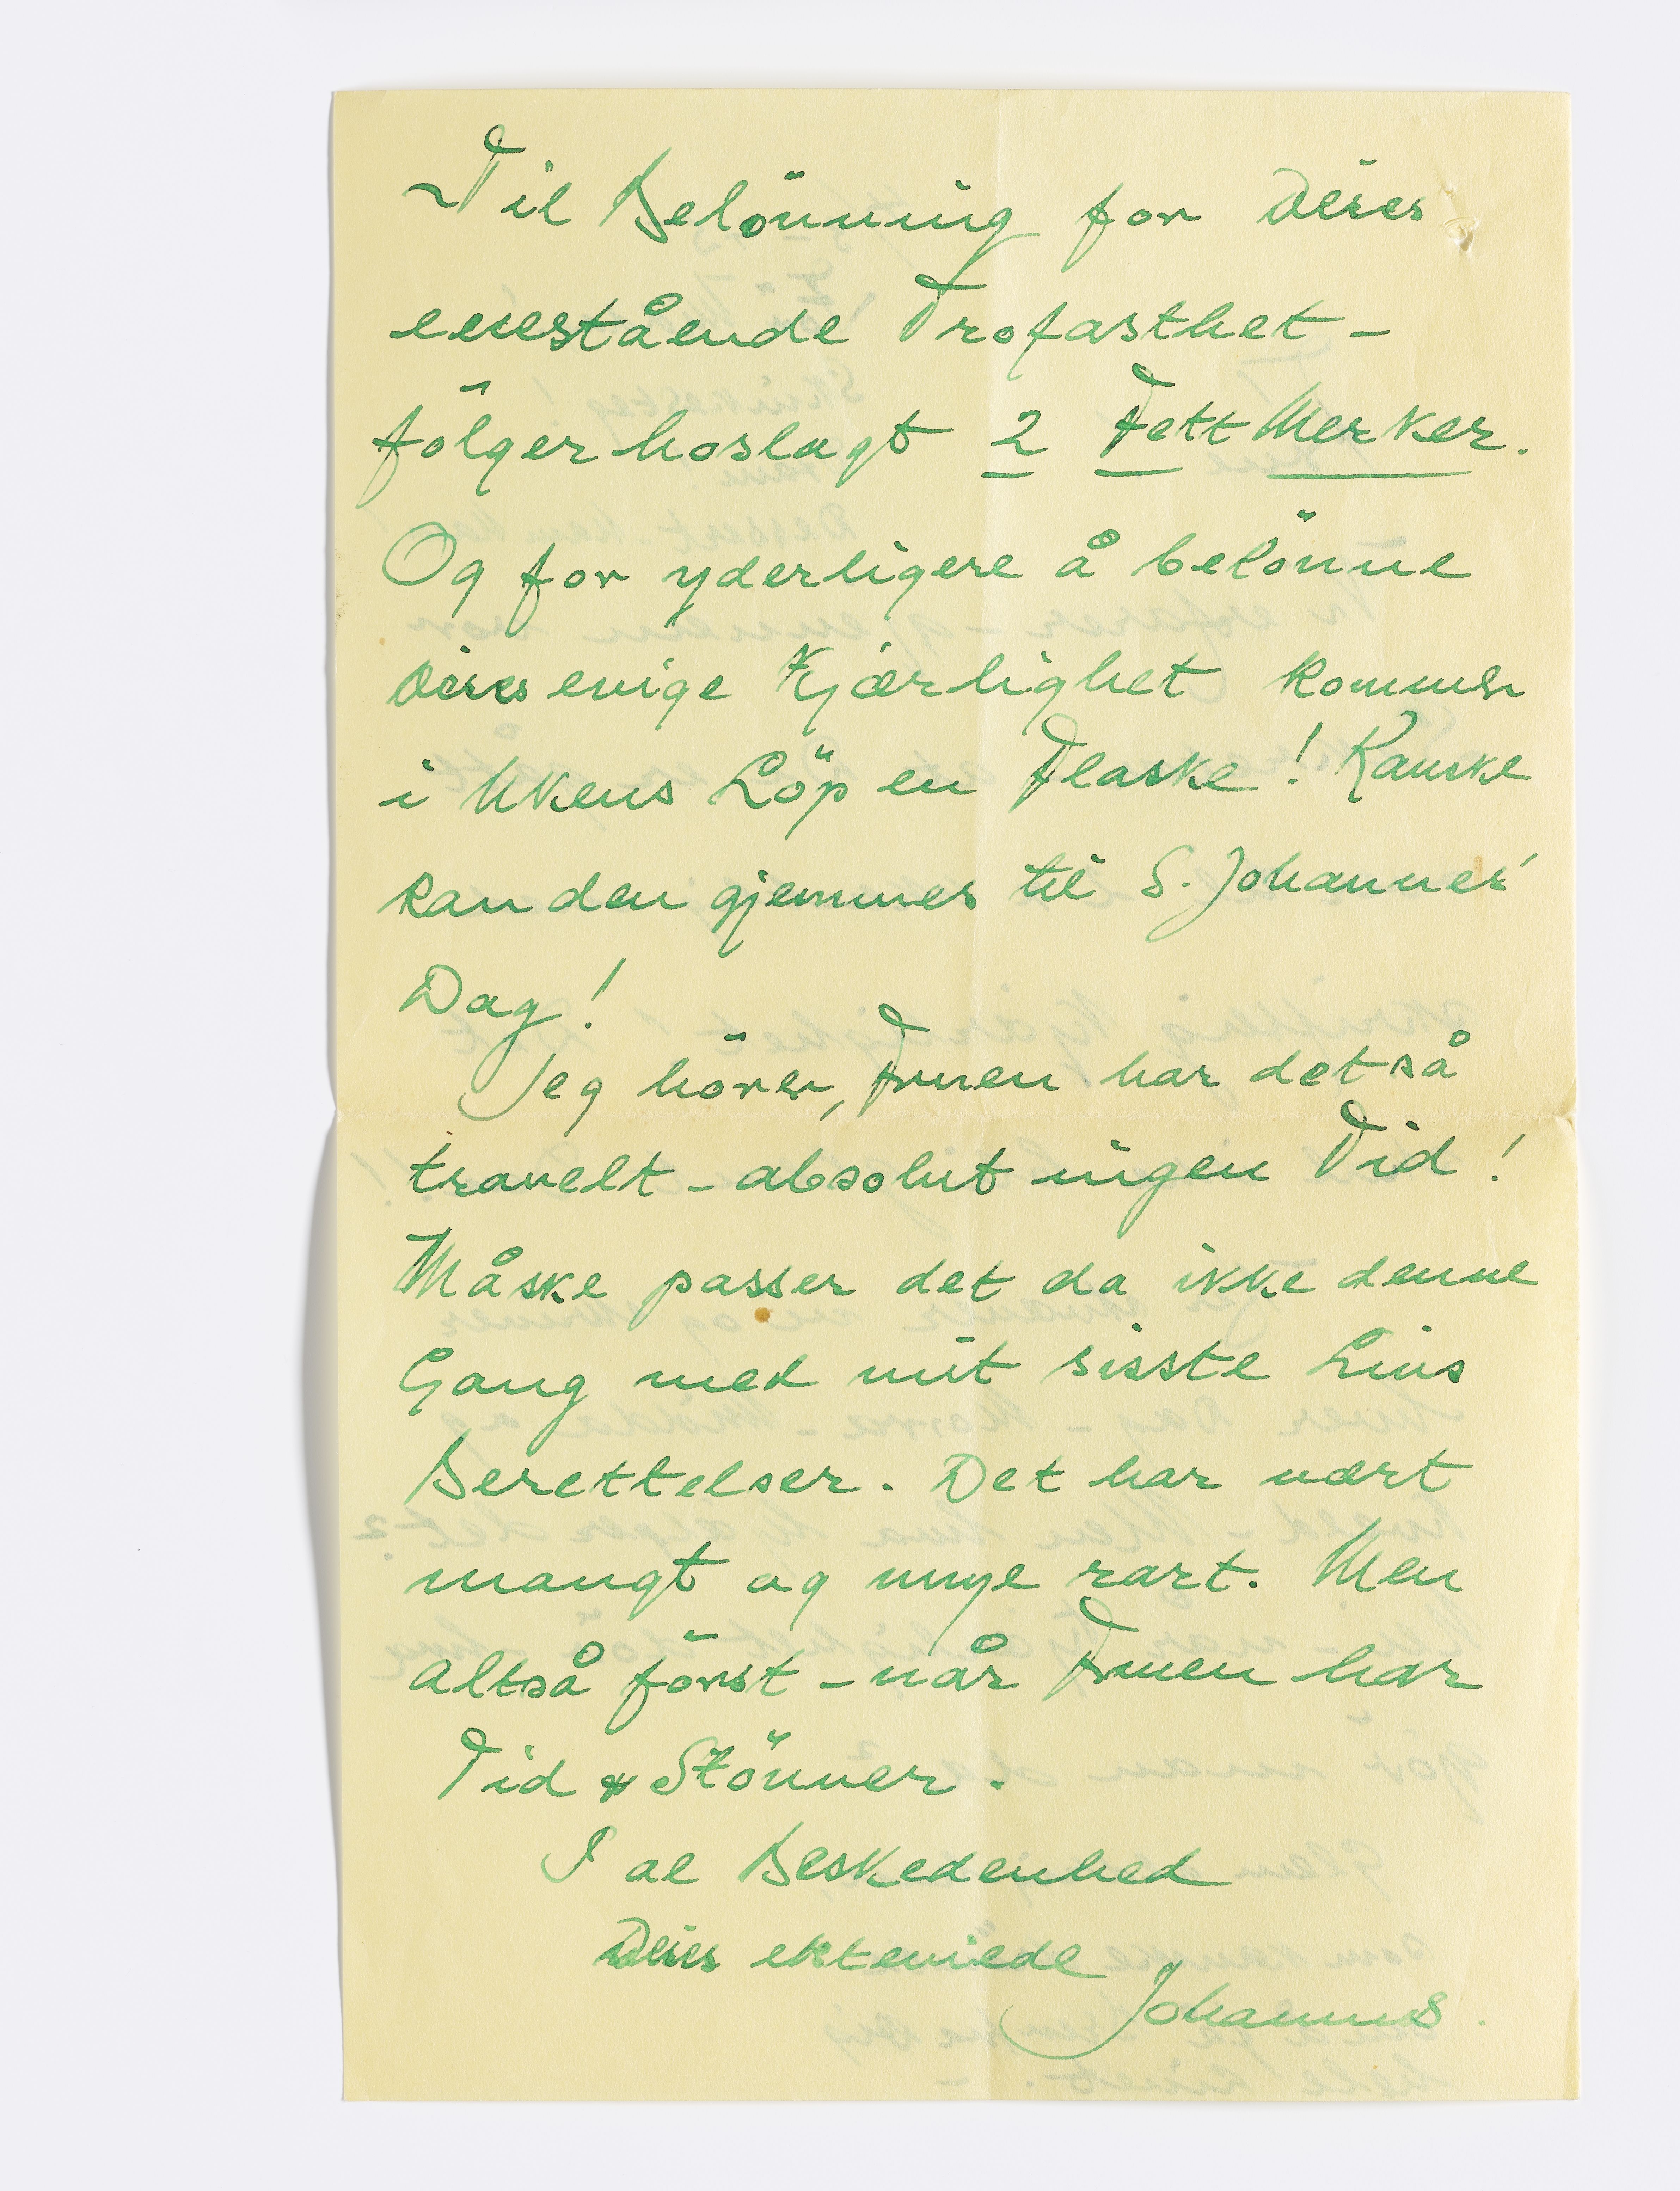 Til Belönning for Deres
enestående Trofasthet –
fölger hoslagt 2 Fett Merker.
Og for yderligere å belönne
Deres evige Kjærlighet kommer
i Ukens Löp en Flaske! Kanske
kan den gjemmes til S. Johannes'
Dag!
Jeg hörer, Fruen har det så
travelt – absolut ingen Tid!
Måske passer det da ikke denne
Gang med mit sisste Livs
Berettelser. Det har vært
mangt og mye rart. Men
altså först – når Fruen har
Tid & Stönner.
I al Beskedenhed
Deres ekteviede
Johannes.